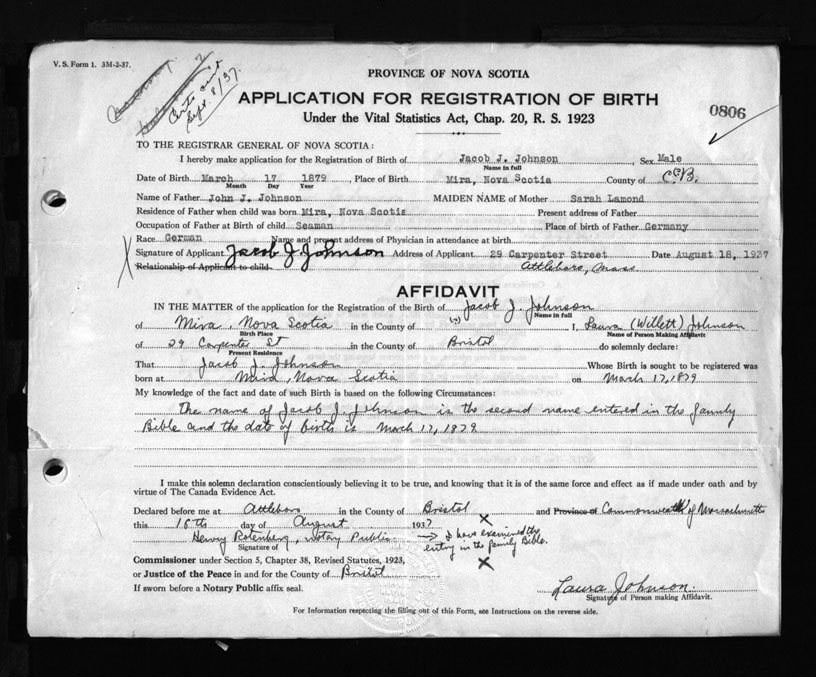 V. S. Form 1. 3M-2-37.
Certs sent
Sept. 8/37.
PROVINCE OF NOVA SCOTIA
APPLICATION FOR REGISTRATION OF BIRTH
0806
Under the Vital Statistics Act, Chap. 20, R. S. 1923
TO THE REGISTRAR GENERAL OF NOVA SCOTIA:
I hereby make application for the Registration of Birth of Jacob J. Johnson, Sex Male
Name in full
Date of Birth March 17 1879, Place of Birth Mira, Nova Scotia County of C.B.
Month Day Year
Name of Father John J. Johnson MAIDEN NAME of Mother Sarah Lamond
Residence of Father when child was born Mira, Nova Scotia Present address of Father
Occupation of Father at Birth of child Seaman Place of birth of Father Germany
Race German Name and present address of Physician in attendance at birth
Signature of Applicant Jacob J Johnson Address of Applicant 29 Carpenter Street Date August 18, 1937
Relationship of Applicant to child. Attleboro, Mass
AFFIDAVIT
IN THE MATTER of the application for the Registration of the Birth of Jacob J. Johnson
Name in full
of Mira, Nova Scotia in the County of (?) I, Laura (Willett) Johnson
Birth Place Name of Person Making Affidavit
of 29 Carpenter St in the County of Bristol do solemnly declare:
Present Residence
That Jacob J. Johnson Whose Birth is sought to be registered was
born at Mira, Nova Scotia on March 17, 1879
My knowledge of the fact and date of such Birth is based on the following Circumstances:
The name of Jacob J. Johnson is the second name entered in the family
Bible and the date of birth is March 17, 1879
I make this solemn declaration conscientiously believing it to be true, and knowing that it is of the same force and effect as if made under oath and by
virtue of The Canada Evidence Act.
Declared before me at Attleboro in the County of Bristol and Province of Commonwealth of Massachusetts
this 18th day of August 1937
Henry Rotenberg, Notary Public → I have examined the
entry in the family Bible.
Signature of
Commissioner under Section 5, Chapter 38, Revised Statutes, 1923,
or Justice of the Peace in and for the County of Bristol
If sworn before a Notary Public affix seal.
Laura Johnson.
Signature of Person making Affidavit.
For Information respecting the filling out of this Form, see Instructions on the reverse side.